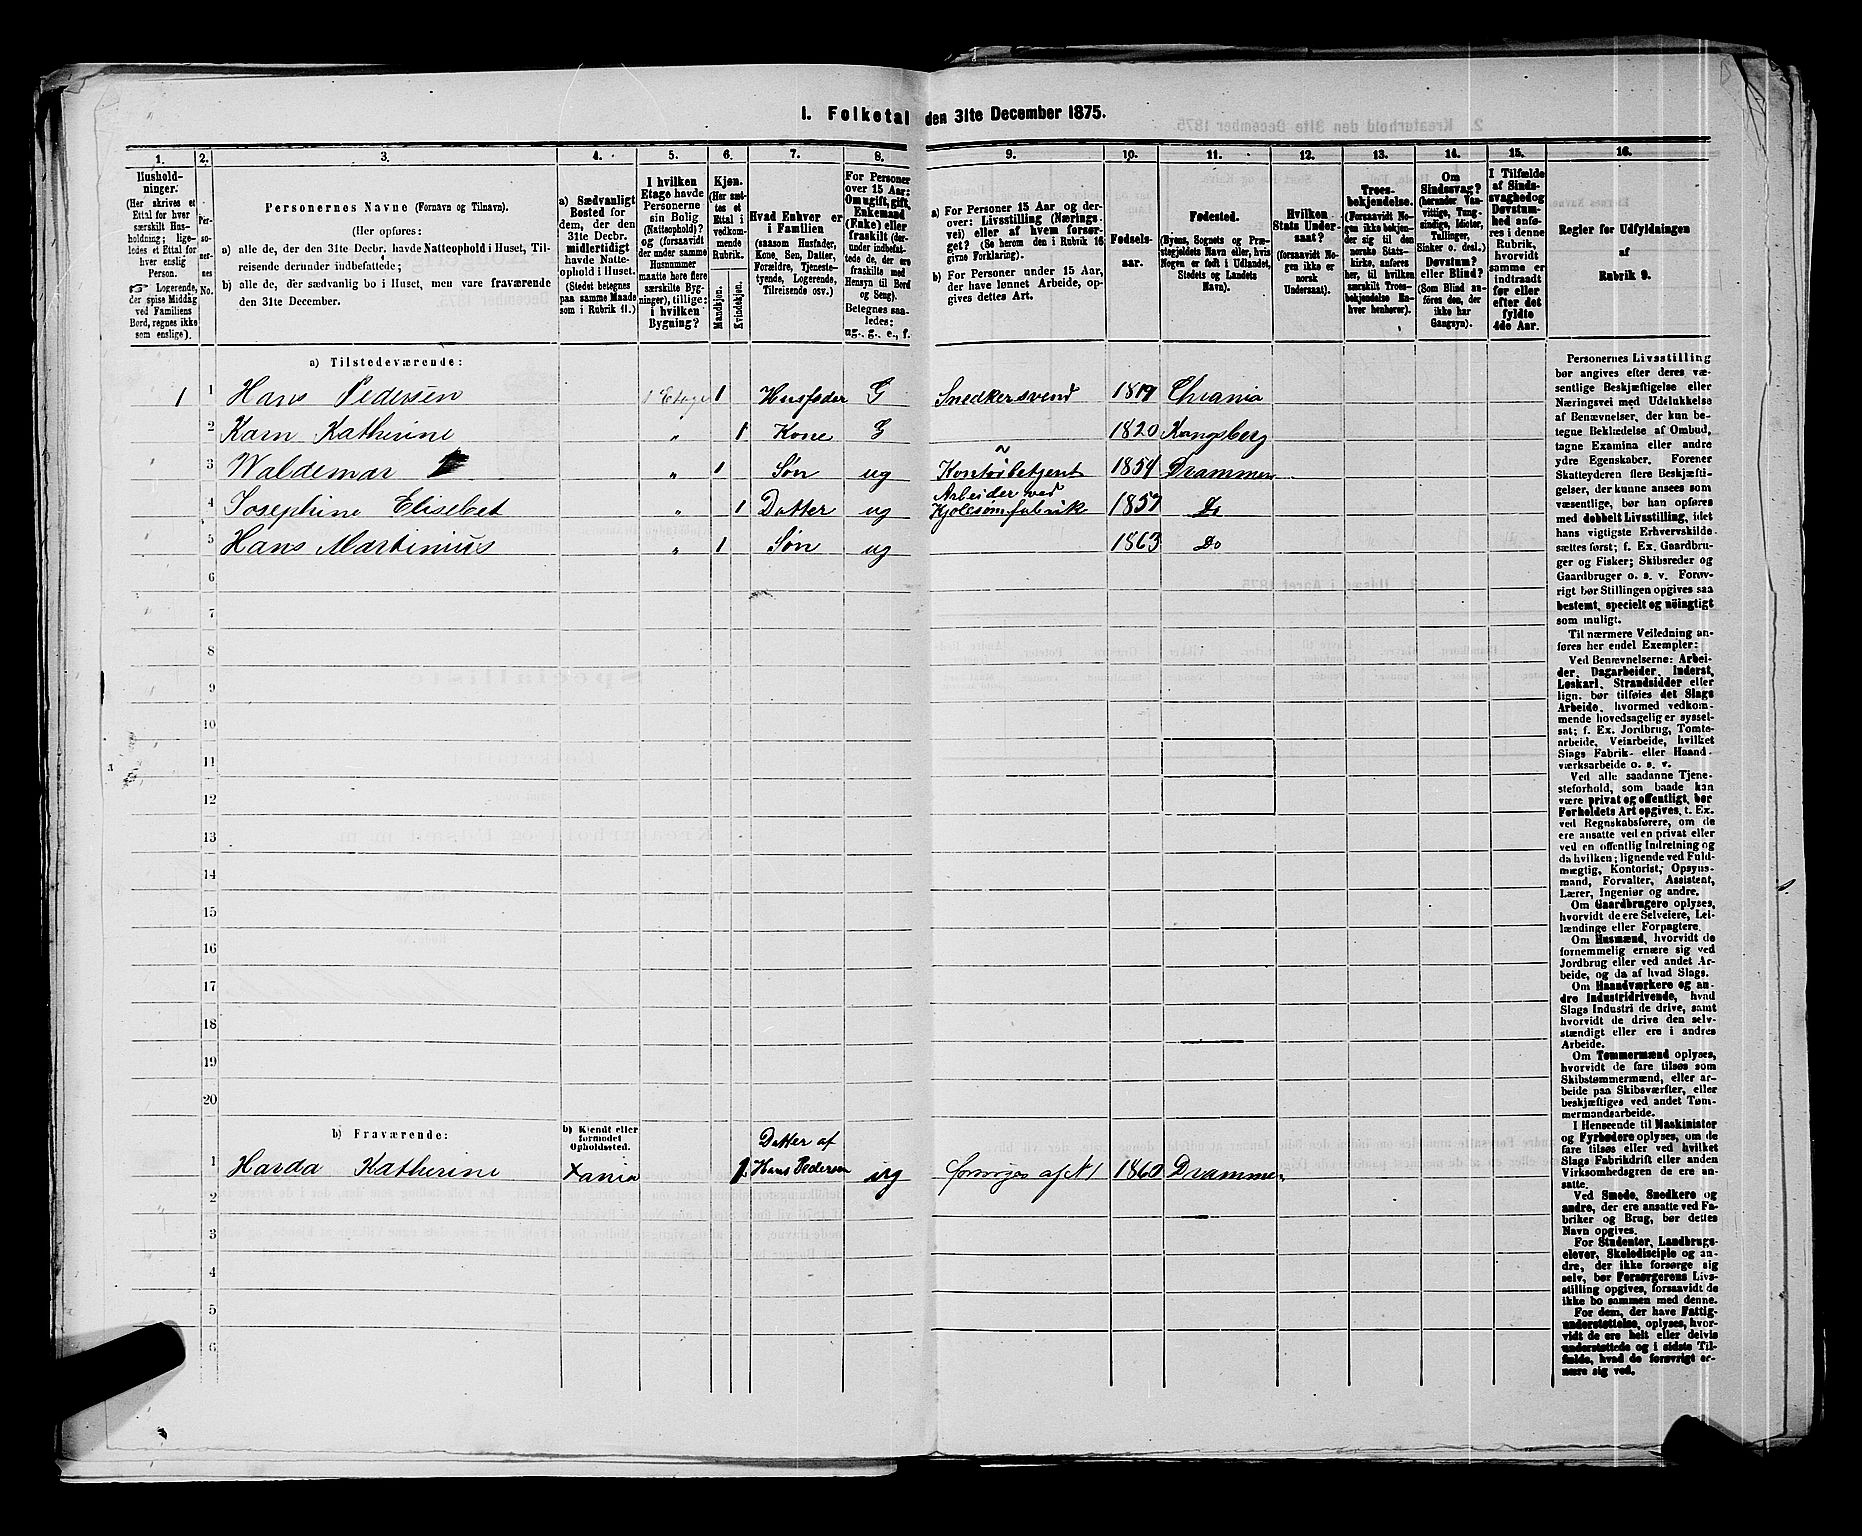 1. Folketal den 31te December 1875.
1. 2. 3. 4. 5. 6. 7. 8. 9. 10. 11. 12. 13. 14. 15. 16.
Hushold-
ninger.
(Her skrives et
Ettal for hver
særskilt Hus-
holdning; lige-
ledes et Ettal for
hver enslig
Person.
Logerende,
der spise Middag
ved Familiens
Bord, regnes ikke
som enslige).
Per-
so-
ner-
nes
No.
Personernes Navne (Fornavn og Tilnavn).
(Her opføres:
a) alle de, der den 31te Decbr. havde Natteophold i Huset, Til-
reisende derunder indbefattede;
b) alle de, der sædvanlig bo i Huset, men vare fraværende
den 31te December.
a) Sædvanligt
Bosted for
dem, der den
31te Decbr.
midlertidigt
havde Natte-
ophold i Huset.
(Stedet betegnes
paa samme Maade
som i Rubrik 11.)
I hvilken
Etage havde
Personerne
sin Bolig
(Natteophold)?
og (forsaavidt
der under samme
Husnummer
maatte høre flere
særskilte Byg-
ninger), tillige:
i hvilken
Bygning?
Kjøn.
(Her sæt-
tes et
Ettal i
vedkom-
mende
Rubrik.
Mandkjøn.
Kvindekjøn.
Hvad Enhver er
i Familien
(saasom Husfader,
Kone, Søn, Datter,
Forældre, Tjeneste-
tyende, Logerende,
Tilreisende osv.)
For Personer
over 15 Aar:
Om ugift, gift,
Enkemand
(Enke) eller
fraskilt (der-
under indbefat-
tede de, der ere
fraskilte med
Hensyn til Bord
og Seng).
Betegnes saa-
ledes:
ug., g., e., f.
a) For Personer 15 Aar og der-
over: Livsstilling (Nærings-
vei) eller af hvem forsør-
get? (Se herom den i Rubrik 16
givne Forklaring).
b) For Personer under 15 Aar,
der have lønnet Arbeide, op-
gives dettes Art.
Fødsels-
aar.
Fødested.
(Byens, Sognets og Præ-
stegjeldets Navn eller, hvis
Nogen er født i Udlandet,
Stedets og Landets
Navn).
Hvilken
Stats Under-
saat?
(forsaavidt No-
gen ikke er
norsk
Undersaat).
Troes-
bekjendelse.
(Forsaavidt No-
gen ikke bekjen-
der sig til den
norske Stats-
kirke, anføres
her, til hvilken
særskilt Troes-
bekjendelse En-
hver henhører).
Om
Sindssvag?
(herunder Van-
vittige, Tung-
sindige, Idioter,
Tullinger,
Sinker o. desl.)
Døvstum?
eller Blind?
(Som Blind an-
føres den, der
ikke har
Gangsyn).
I Tilfælde
af Sinds-
svaghed og
Døvstum-
hed anfø-
res i denne
Rubrik,
hvorvidt
samme er
indtraadt
før eller
efter det
fyldte
4de Aar.
Regler for Udfyldningen
af
Rubrik 9.
a) Tilstedeværende:
1 1 Hans Pedersen 1 Etage 1 Husfader G Snedkersvend 1819 Chrania
2 Karn Katherine „ 1 Kone G 1820 Kongsberg
3 Waldemar „ 1 Søn ug Kontorbetjent 1854 Drammen
4 Josephine Elisebet „ 1 Datter ug Arbeider ved
Kjolesømfabrik 1857 Do
5 Hans Martinius „ 1 Søn ug 1863 Do
6
7
8
9
10
11
12
13
14
15
16
17
18
19
20
b) Fraværende:
b) Kjendt eller
formodet
Opholdssted.
1 Harda Katherine Xania 1 Datter af
Hans Pedersen ug forsörges af N 1 1860 Drammen
2
3
4
5
6
Personernes Livsstilling
bør angives efter deres væ-
sentlige Beskjæftigelse eller
Næringsvei med Udelukkelse
af Benævnelser, der kun be-
tegne Beklædelse af Ombud,
tagne Examina eller andre
ydre Egenskaber. Forener
Skatteyderen flere Beskjæfti-
gelser, der kunne ansees som
væsentlige, bør han opføres
med dobbelt Livsstilling, idet
hans vigtigste Erhvervskilde
sættes først; f. Ex. Gaardbru-
ger og Fisker; Skibsreder og
Gaardbruger o. s. v. Forøv-
rigt bør Stillingen opgives saa
bestemt, specielt og nøiagtigt
som muligt.
Til nærmere Veiledning an-
føres her endel Exempler:
Ved Benævnelserne: Arbei-
der, Dagarbeider, Inderst,
Løskarl, Strandsidder eller
lign. bør tilføies det Slags
Arbeide, hvormed vedkom-
mende hovedsagelig er syssel-
sat; f. Ex. Jordbrug, Tomte-
arbeide, Veiarbeide, hvilket
Slags Fabrik- eller Haand-
værksarbeide o. s. v.
Ved alle saadanne Tjene-
steforhold, som baade kan
være privat og offentligt, bør
Forholdets Art opgives, t. Ex.
ved Regnskabsførere, om de
ere ansatte ved en privat eller
ved en offentlig Indretning og
da hvilken; lignende ved Fuld-
mægtig, Kontorist, Opsyns-
mand, Forvalter, Assistent,
Lærer, Ingeniør og andre.
Om Gaardbrugere oplyses,
hvorvidt de ere Selveiere, Lei-
lændinge eller Forpagtere.
Om Husmænd, hvorvidt de
fornemmelig ernære sig ved
Jordbrug eller ved andet Ar-
beide, og da af hvad Slags.
Om Haandværkere og an-
dre Industridrivende, hvad
Slags Industri de drive, samt
hvorvidt de drive den selv-
stændigt eller ere i andres
Arbeide.
Om Tømmermænd oplyses,
hvorvidt de fare tilsøs som
Skibstømmermænd, eller ar-
beide paa Skibsværfter, eller
beskjæftiges ved andet Tøm-
mermandsarbeide.
I Henseende til Maskinister
og Fyrbødere oplyses, om de
fare tilsøs eller ved hvilket
Slags Fabrikdrift eller anden
Virksomhedsgren de ere an-
satte.
Ved Smede, Snedkere og
andre, der ere ansatte ved Fa-
briker og Brug, bør dettes
Navn opgives.
For Studenter, Landbrugs-
elever, Skoledisciple og an-
dre, der ikke forsørge sig
selv, bør Forsørgerens Livs-
stilling opgives, forsaavidt de
ikke bo sammen med denne.
For dem, der have Fattig-
understøttelse, oplyses, hvor-
vidt de ere helt eller delvis
understøttede og i sidste Til-
fælde, hvad de forøvrigt er-
nære sig ved.